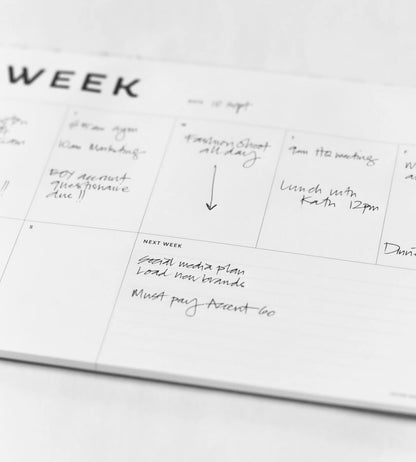 WEEK
10 Sept
am
!!
6:45am gym
10am Marketing
ROY account
questionaire
due !!
Fashion Shoot
all day
9am HQ meeting
Lunch with
Kath 12pm
W
S
NEXT WEEK
Social media plan
Load new brands
Must pay Accent Go